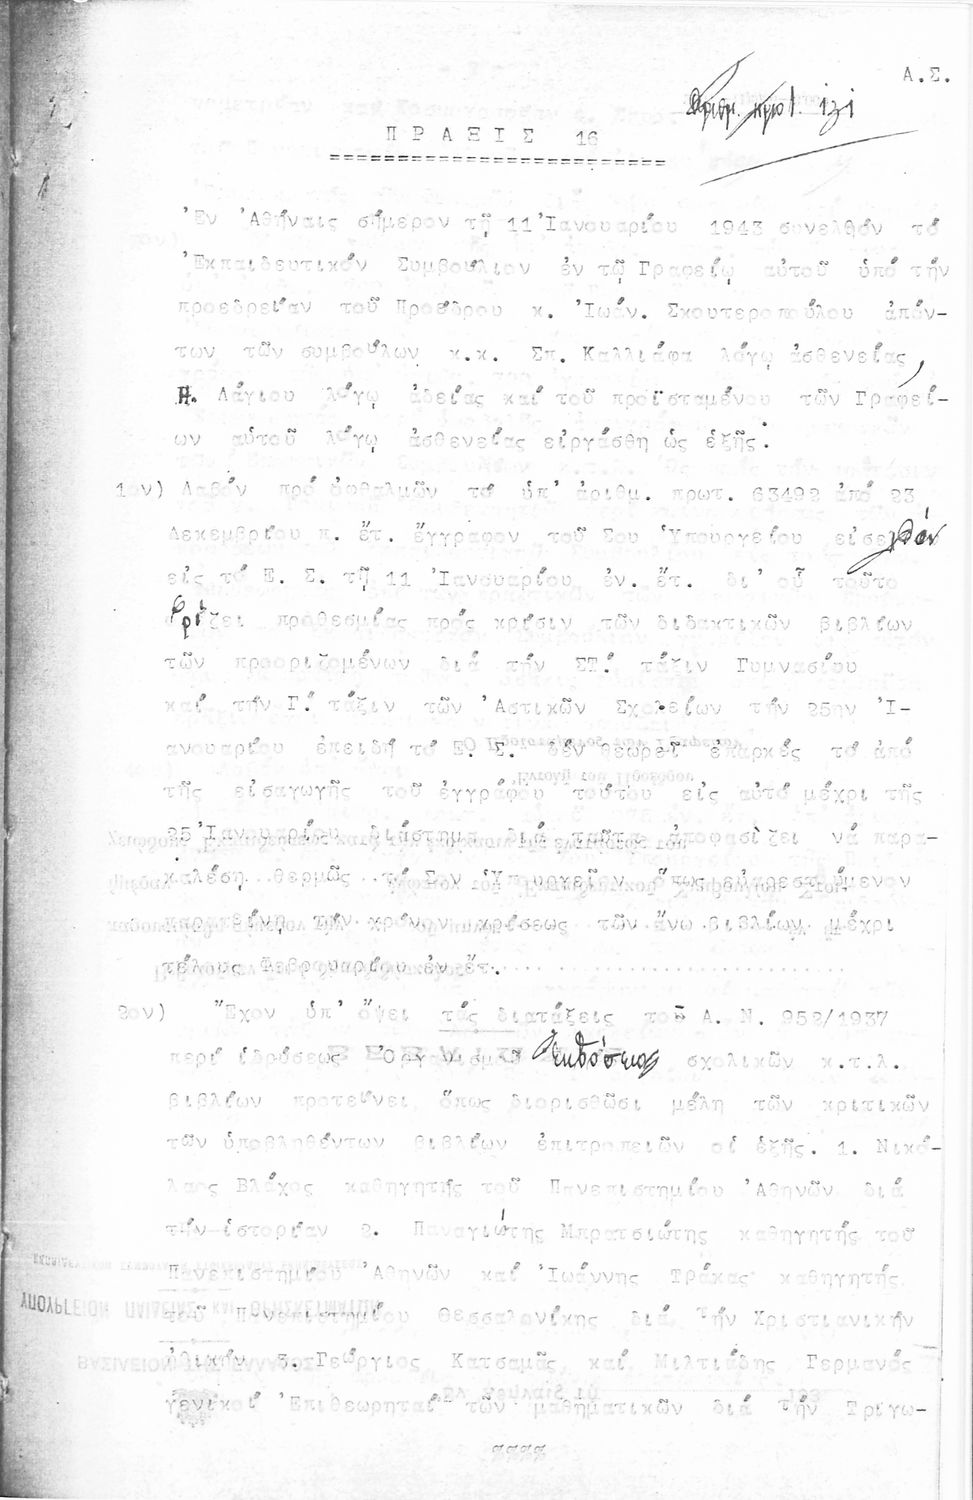 Α.Σ.
Π Ρ Α Ξ Ι Σ 16
Ἐν Ἀθήναις σήμερον τῇ 11 Ἰανουαρίου 1943 συνελθόν τό
Ἐκπαιδευτικόν Συμβούλιον ἐν τῷ Γραφείῳ αὐτοῦ ὑπό τήν
προεδρείαν τοῦ Προέδρου κ. Ἰωάν. Σκουτεροπούλου ἀπάν-
των τῶν συμβούλων κ.κ. Σπ. Καλλιάφα λόγῳ ἀσθενείας,
Π. Λάγιου λόγῳ ἀδείας καί τοῦ προϊσταμένου τῶν Γραφεί-
ων αὐτοῦ λόγῳ ἀσθενείας εἰργάσθη ὡς ἑξῆς:
1ον) Λαβόν πρό ὀφθαλμῶν τό ὑπ' ἀριθμ. πρωτ. 63492 ἀπό 23
Δεκεμβρίου π. ἔτ. ἔγγραφον τοῦ Σου Ὑπουργείου εἰσελθόν
εἰς τό Ε. Σ. τῇ 11 Ἰανουαρίου ἐν. ἔτ. δι' οὗ τοῦτο
ὁρίζει προθεσμίας πρός κρίσιν τῶν διδακτικῶν βιβλίων
τῶν προοριζομένων διά τήν ΣΤ΄ τάξιν Γυμνασίου
καί τήν Γ΄ τάξιν τῶν Ἀστικῶν Σχολείων τήν 25ην Ἰ-
ανουαρίου ἐπειδή τό Ε. Σ. δέν θεωρεῖ ἐπαρκές τό ἀπό
τῆς εἰσαγωγῆς τοῦ ἐγγράφου τούτου εἰς αὐτό μέχρι τῆς
25 Ἰανουαρίου διάστημα διά ταῦτα ἀποφασίζει νά παρα-
καλέσῃ θερμῶς τό Σον Ὑπουργεῖον ὅπως εὐαρεστούμενον
παρατείνῃ τήν χρόνον κρίσεως τῶν ἄνω βιβλίων μέχρι
τέλους Φεβρουαρίου ἐν. ἔτ.
2ον) Ἔχον ὑπ' ὄψει τάς διατάξεις τοῦ Α. Ν. 952/1937
περί ἱδρύσεως Ὀργανισμοῦ ἐκδόσεως σχολικῶν κ.τ.λ.
βιβλίων προτείνει, ὅπως διορισθῶσι μέλη τῶν κριτικῶν
τῶν ὑποβληθέντων βιβλίων ἐπιτροπειῶν οἱ ἑξῆς. 1. Νικό-
λαος Βλάχος καθηγητής τοῦ Πανεπιστημίου Ἀθηνῶν διά
τήν ἱστορίαν 2. Παναγιώτης Μπρατσιώτης καθηγητής τοῦ
Πανεπιστημίου Ἀθηνῶν καί Ἰωάννης Τράκας καθηγητής
τοῦ Πανεπιστημίου Θεσσαλονίκης διά τήν Χριστιανικήν
ἠθικήν 3. Γεώργιος Κατσαμᾶς καί Μιλτιάδης Γερμανός
γενικοί Ἐπιθεωρηταί τῶν μαθηματικῶν διά τήν Τριγω-